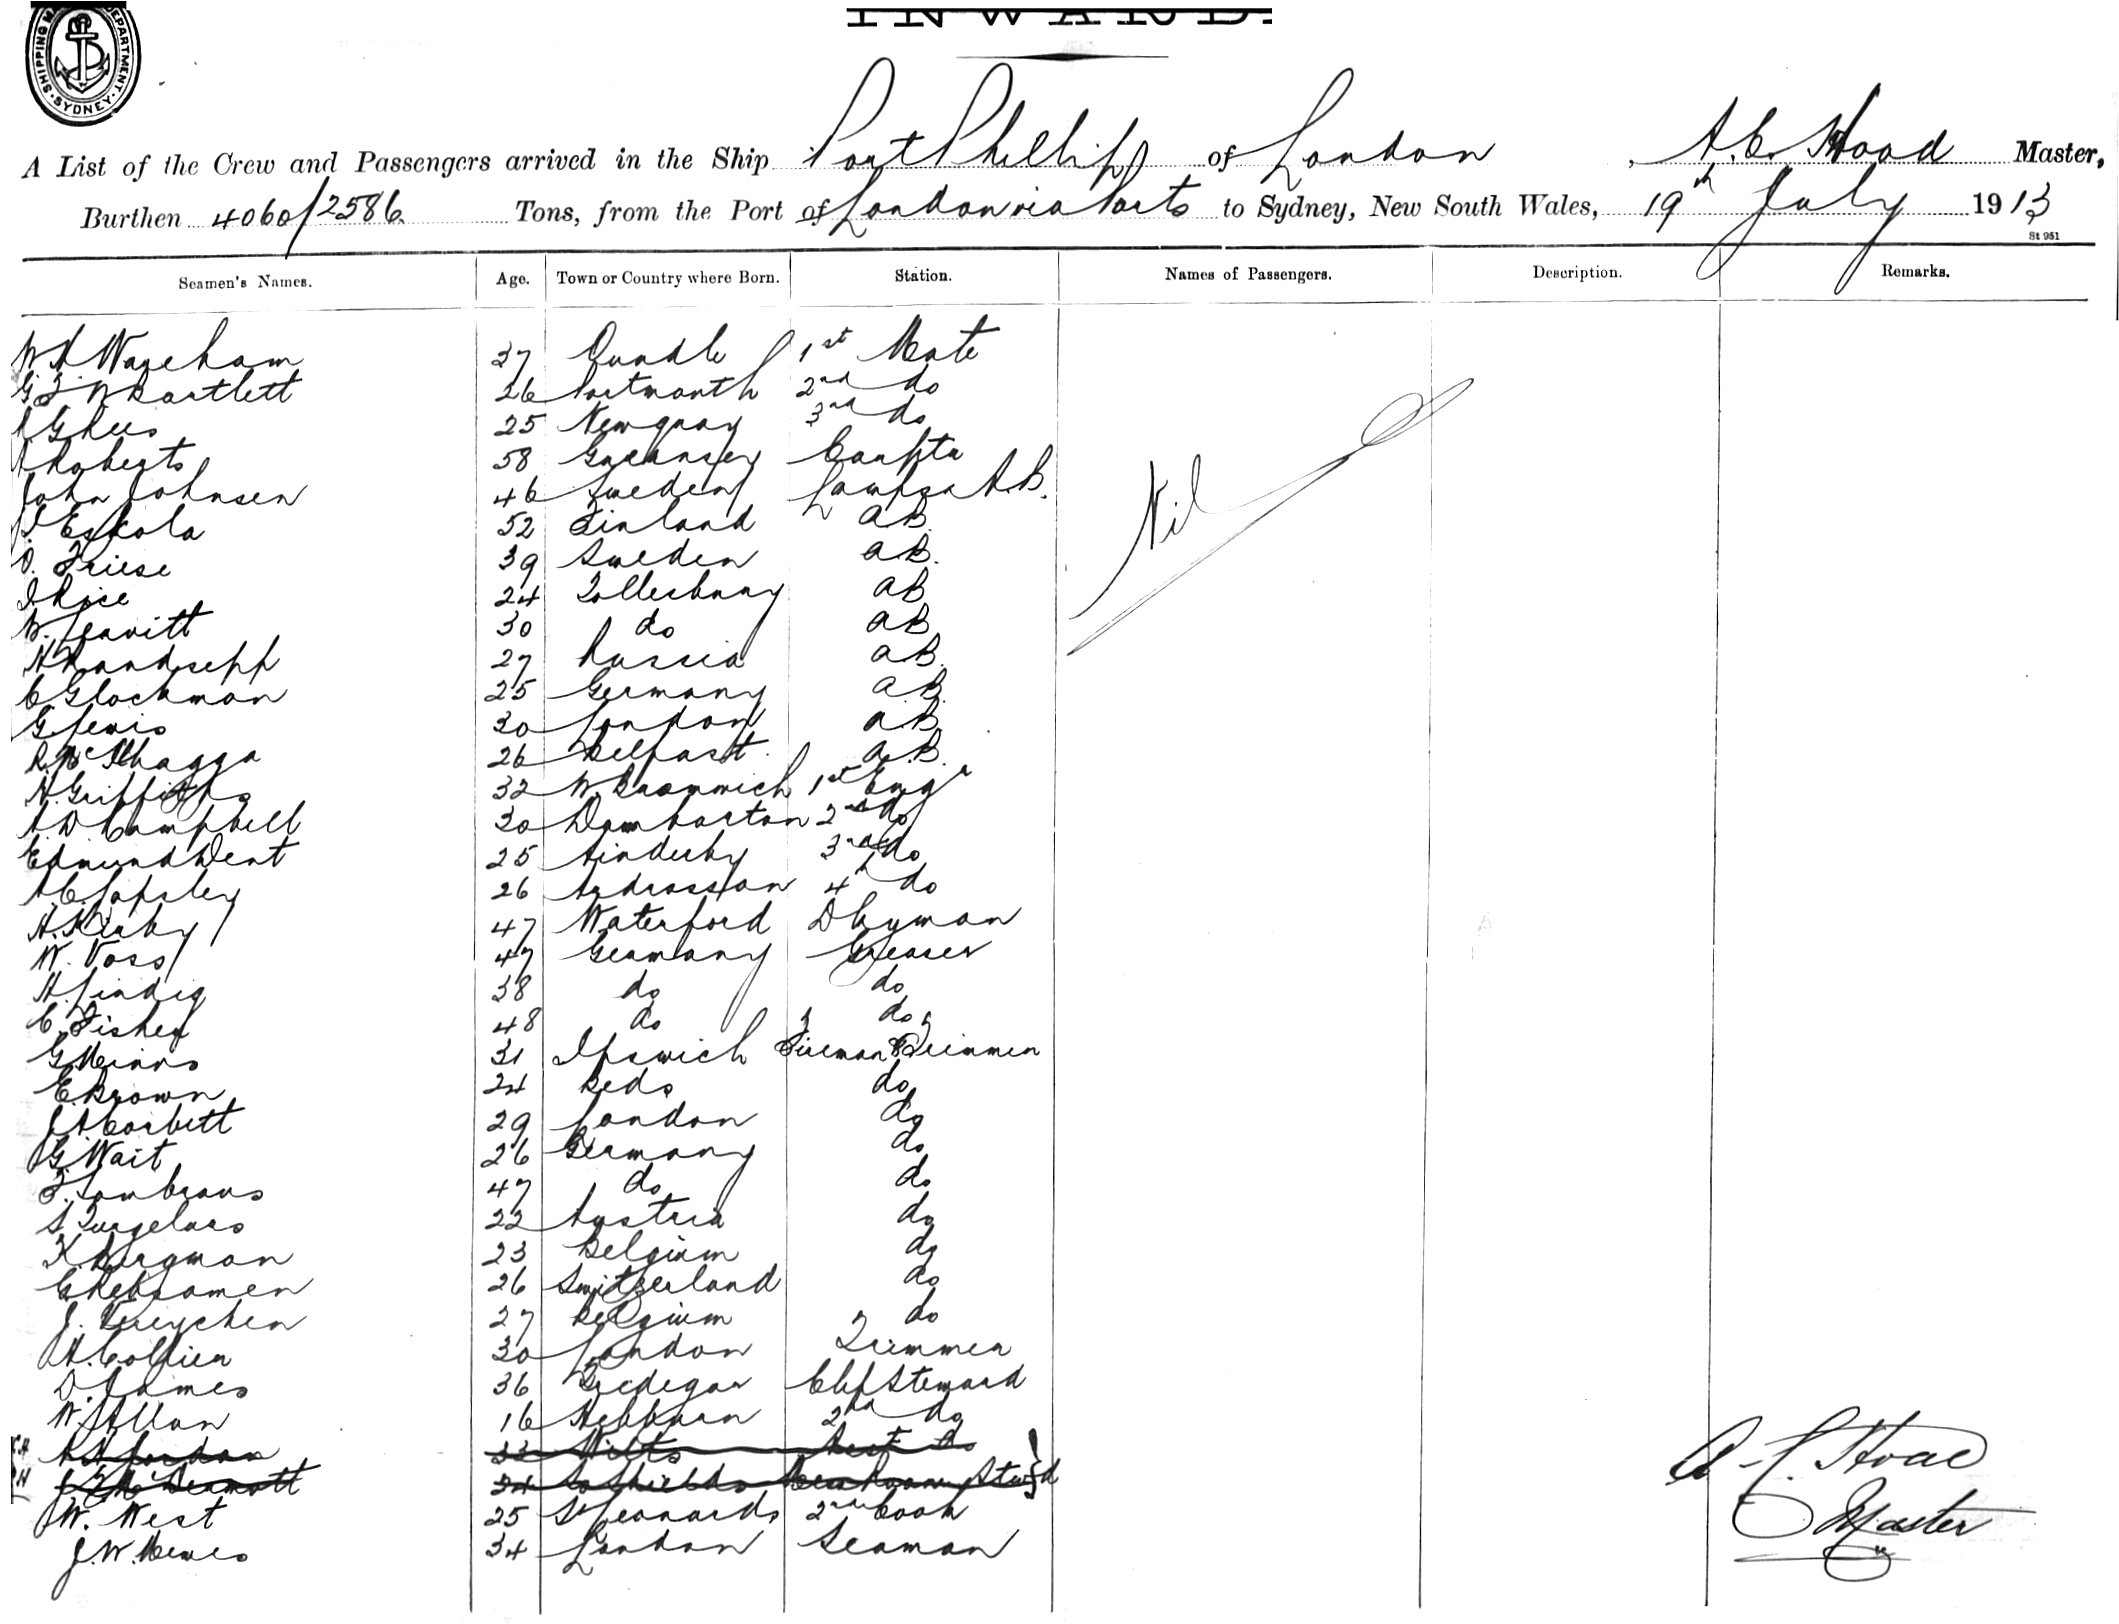 SHIPPING MASTER'S DEPARTMENT. SYDNEY.
INWARD.
A List of the Crew and Passengers arrived in the Ship Port Phillip of London, A. C. Hood Master,
Burthen 4060/2586 Tons, from the Port of London via Ports to Sydney, New South Wales, 19th July 1913
St 951
Seamen's Names. Age. Town or Country where Born. Station. Names of Passengers. Description. Remarks.
W. A Wareham 37 Oundle 1st Mate
G. F. W Bartlett 26 Portmouth 2nd do
G Lees 25 Newquay 3rd do
A Roberts 58 Guernsey Carptr
John Johnsen 46 Sweden Lamps & A.B.
J. Eskola 52 Finland AB.
O. Friese 39 Sweden AB.
I Rice 24 Tollesbury AB
W. Leavitt 30 do AB
H Randsepp 27 Russia AB.
C Glockman 25 Germany AB.
G Lewis 30 London A.B.
R. Mc 26 Belfast A.B.
H. Griffiths 32 W. Bromwich 1st Engr
A. D. Campbell 30 Dumbarton 2nd do
Edmund Dent 25 Ainderby 3rd do
A. C. Lapsley 26 Ardrossan 4th do
H. Kirby 47 Waterford Dkyman
W. Voss 47 Germany Greaser
H. Lindig 38 do do
C. Fisher 48 do do
G. Means 31 Ipswich Fireman & Trimmer
E. Brown 24 Beds do
J A Corbett 29 London do
G. Wait 26 Germany do
F. Lambrans 47 do do
S. 22 Austria do
K. Bergman 23 Belgium do
C 26 Switzerland do
J. 27 Belgium do
H. Collier 30 London Trimmer
D. James 36 Tredegar Chf Steward
W. Allan 16 Hebburn 2nd do
A H Jordan 33 Wilts Asst do
J. Mc Dermott 24 So Shields Messroom Stwd
W. West 25 St Leonards 2nd Cook
J. W. Mewes 34 London Seaman
Nil
A. C. Hood
Master